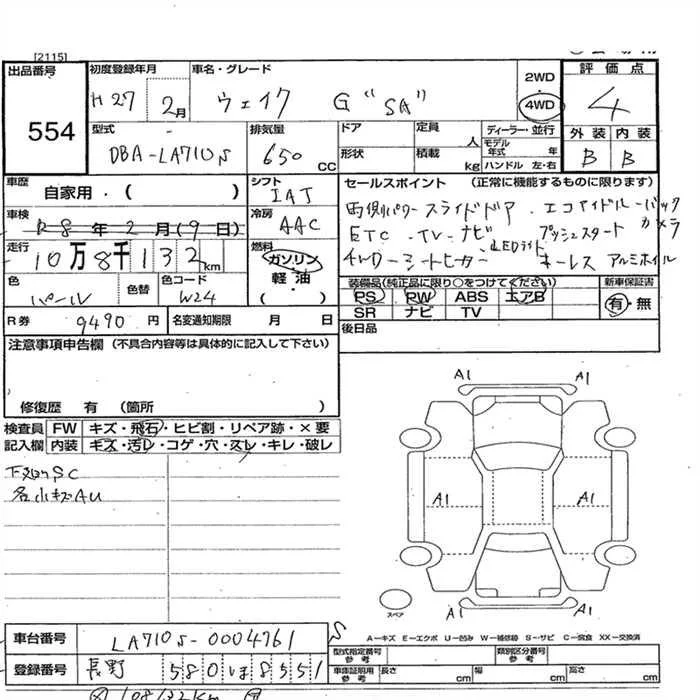 [2115]
出品番号 初度登録年月 車名・グレード 2WD 評価点
554 H27 2月 ウェイク G "SA" 4WD 4
型式 排気量 ドア 定員 ディーラー・並行 外装 内装
DBA-LA710S 650 CC 形状 積載 人 kg モデル年式 年 ハンドル 左・右 B B
車歴 自家用・( ) シフト IAT セールスポイント (正常に機能するものに限ります)
車検 R8年2月(9日) 冷房 AAC 両側パワースライドドア . エコアイドル・バックカメラ
走行 10万8千132km 燃料 ガソリン 軽・油 ( ) ETC . TV-ナビ プッシュスタート
LEDライト
4WD-シートヒーター キーレス アルミホイル
色 パール 色替 色コード W24 装備品(純正品に限り○をつけてください) 新車保証書
PS PW ABS エアB 有・無
SR ナビ TV
R券 9490円 名変通知期限 月 日 後日品
注意事項申告欄 (不具合内容等は具体的に記入して下さい)
修復歴 有 (箇所 )
検査員 FW キズ・飛石・ヒビ割・リペア跡・×要
記入欄 内装 キズ・汚レ・コゲ・穴・スレ・キレ・破レ
下廻りSC
各小キズAU
A1 A1
A1 A1
A1 A1
スペア
A-キズ E-エクボ U-凹み W-補修跡 S-サビ C-腐食 XX-交換済
車台番号 LA710S-0004761 S
型式指定番号 参考 類別区分番号 参考
登録番号 長野 580 は 8551
車庫証明用 参考 長さ cm 幅 cm 高さ cm
108132km